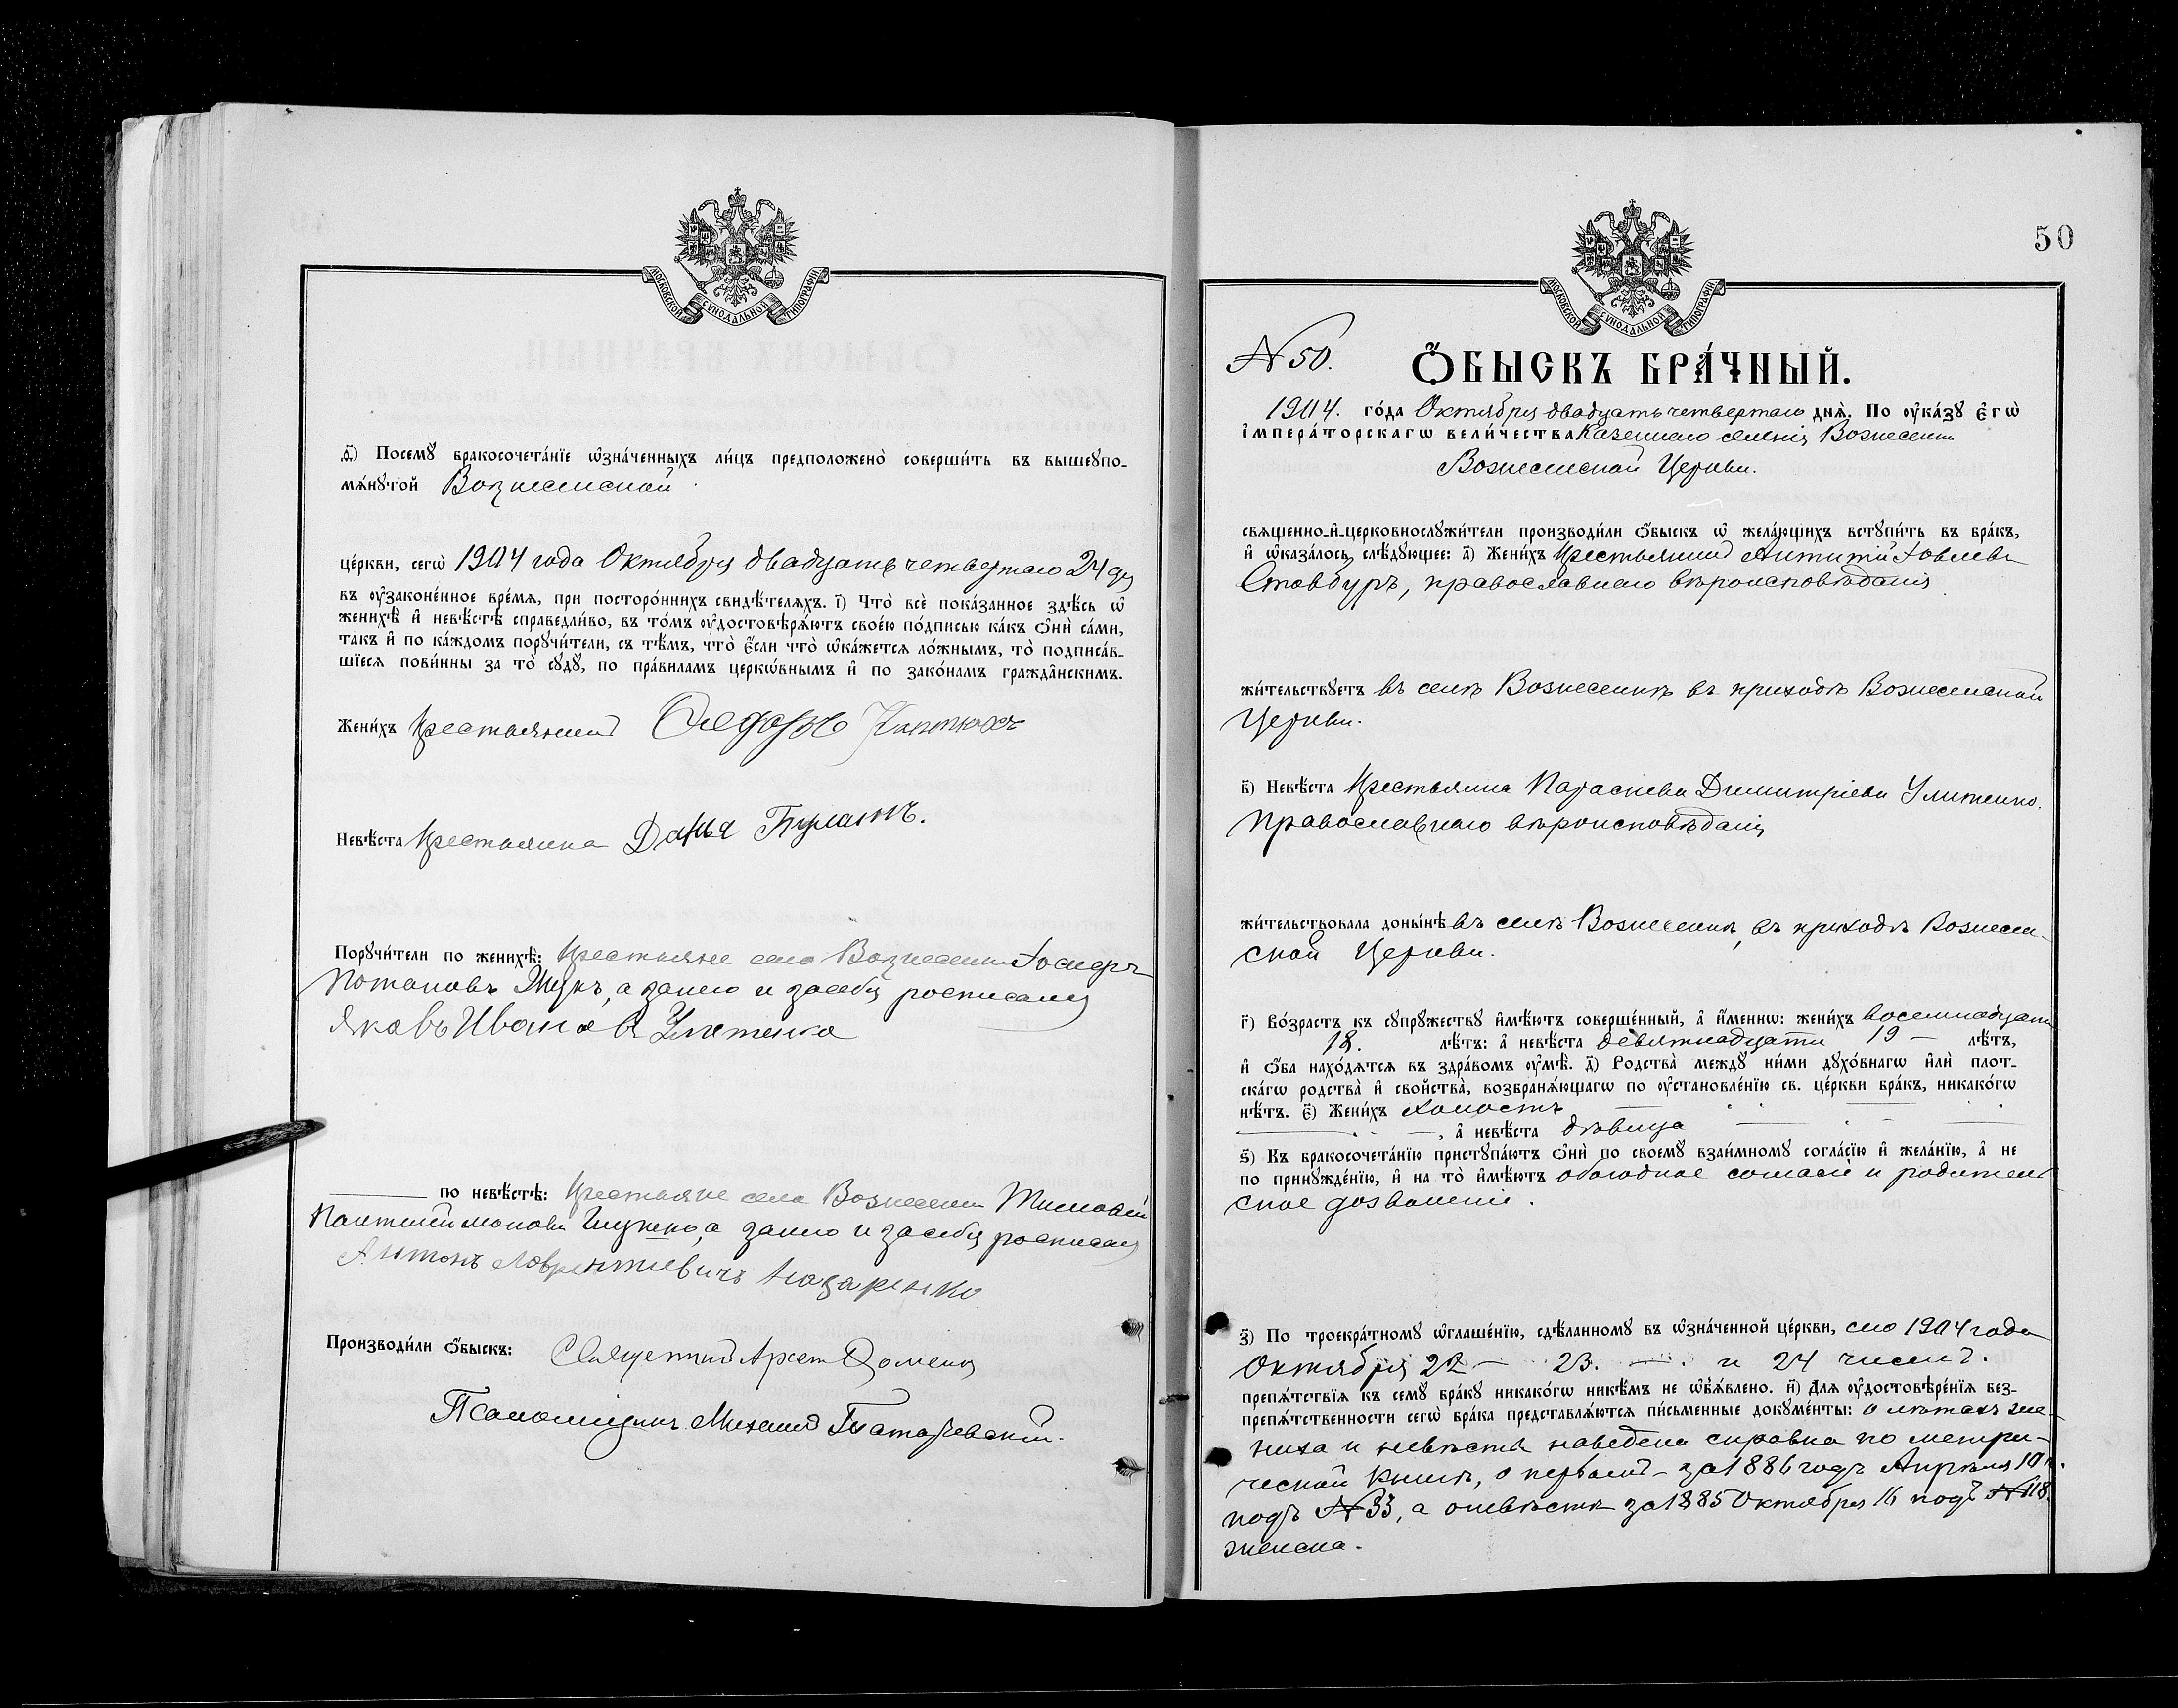 МОСКОВСКОЙ СѴНОДАЛЬНОЙ ТИПОГРАФІИ
ѳ҃) Посемꙋ̀ бракосочета́нїе ѡ҆зна́ченныхъ ли́цъ предположено̀ соверши́ть въ вышеꙋпо-
мѧ́нꙋтой Вознесенской
це́ркви, сегѡ̀ 1904 года Октября двадцать четвертаго 24 дня
въ ᲂу҆законе́нное вре́мѧ, при посторо́ннихъ свидѣ́телѧхъ. і҃) Что̀ всѐ пока́занное здѣ́сь ѡ҆
женихѣ̀ и҆ невѣ́стѣ справедли́во, въ то́мъ ᲂу҆достовѣрѧ́ютъ свое́ю по́дписью ка́къ ѻ҆нѝ са́ми,
та́къ и҆ по ка́ждомъ порꙋчи́тели, съ тѣ́мъ, что̀ є҆́сли что̀ ѡ҆ка́жетсѧ ло́жнымъ, то̀ подписа́в-
шїесѧ пови́нны за то̀ сꙋдꙋ̀, по пра́виламъ церкѡ́внымъ и҆ по зако́намъ гражда̂нскимъ.
Жени́хъ крестьянинъ Ѳедоръ
Невѣ́ста крестьянка Дарья
Порꙋчи́тели по женихѣ̀: крестьяне села Вознесенки Іосифъ
Потаповъ Жукъ, а занего и засебя росписался
Яковъ Ивановъ Улитенко
по невѣ́стѣ: крестьяне села Вознесенки Тимофей
Пантелеймоновъ а занего и засебя росписался
Антонъ Лаврентиевичъ Назаренко
Производи́ли ѻ҆́быскъ: Священникъ
Псаломщикъ Михаилъ
50
МОСКОВСКОЙ СѴНОДАЛЬНОЙ ТИПОГРАФІИ
N 50.
Ѻ҆́БЫСКЪ БРА́ЧНЫЙ.
1904. го́да Октября двадцать четвертаго днѧ̀. По ᲂу҆ка́зꙋ є҆гѡ̀
і҆мпера́торскагѡ вели́чества казеннаго селенія Вознесенки
Вознесенской Церкви.
свѧщенно-и҆-церковнослꙋжи́тели производи́ли ѻ҆́быскъ ѡ҆ жела́ющихъ встꙋпи́ть въ бра́къ,
и҆ ѡ҆каза́лось слѣ́дꙋющее: а҃) Жени́хъ крестьянинъ Іовлевъ
Стовбуръ, православнаго вѣроисповѣданія
жи́тельствꙋетъ въ селѣ Вознесенкѣ въ приходѣ Вознесенской
Церкви.
в҃) Невѣ́ста крестьянка Параскева Димитріева Улитенко.
православнаго вѣроисповѣданія
жи́тельствовала донынѣ̀ въ селѣ Вознесенкѣ, въ приходѣ Вознесен-
ской Церкви.
г҃) Во́зрастъ къ сꙋпрꙋ́жествꙋ и҆мѣ́ютъ соверше́нный, а҆ и҆́меннѡ: жени́хъ восемнадцати
18. лѣ́тъ: а҆ невѣ́ста девятнадцати 19 — лѣ́тъ,
и҆ ѻ҆́ба нахо́дѧтсѧ въ здра́вомъ ᲂу҆мѣ̀. д҃) Родства̀ междꙋ̀ ни́ми дꙋхо́внагѡ и҆лѝ плот-
ска́гѡ родства̀ и҆ свойства̀, возбранѧ́ющагѡ по ᲂу҆становле́нїю св. це́ркви бра́къ, никако́гѡ
нѣ́тъ. є҃) Жени́хъ холостъ
, а҆ невѣ́ста дѣвица
ѕ҃) Къ бракосочета́нїю пристꙋпа́ютъ ѻ҆нѝ по своемꙋ̀ взаи́мномꙋ согла́сїю и҆ жела́нїю, а҆ не
по принꙋжде́нїю, и҆ на то̀ и҆мѣ́ютъ обоюдное согласіе и родитель-
ское дозволеніе.
з҃) По троекра́тномꙋ ѡ҆глаше́нїю, сдѣ́ланномꙋ въ ѡ҆зна́ченной це́ркви, сего 1904 года
Октября 22 — 23. — и 24 чиселъ.
препѧ́тствїѧ къ семꙋ̀ бра́кꙋ никако́гѡ никѣ́мъ не ѡ҆б̾ѧ́влено. и҃) Для ᲂу҆достовѣре́нїѧ без-
препѧ́тственности сегѡ̀ бра́ка представлѧ́ютсѧ пи́сьменные докꙋме́нты: о лѣтахъ же-
ниха и невѣсты наведена справка по метри-
ческой книгѣ, о первомъ — за 1886 годъ Апрѣля 10
подъ N 33, а о невѣстѣ за 1885 Октября 16 подъ N 118.
женска.